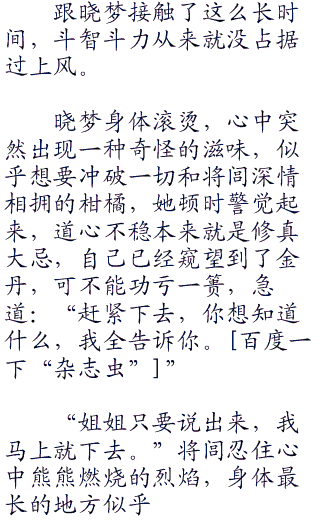 跟晓梦接触了这么长时
间，斗智斗力从来就没占据
过上风。
晓梦身体滚烫，心中突
然出现一种奇怪的滋味，似
乎想要冲破一切和将闾深情
相拥的柑橘，她顿时警觉起
来，道心不稳本来就是修真
大忌，自己已经窥望到了金
丹，可不能功亏一篑，急
道：“赶紧下去，你想知道
什么，我全告诉你。[百度一
下“杂志虫”]”
“姐姐只要说出来，我
马上就下去。”将闾忍住心
中熊熊燃烧的烈焰，身体最
长的地方似乎